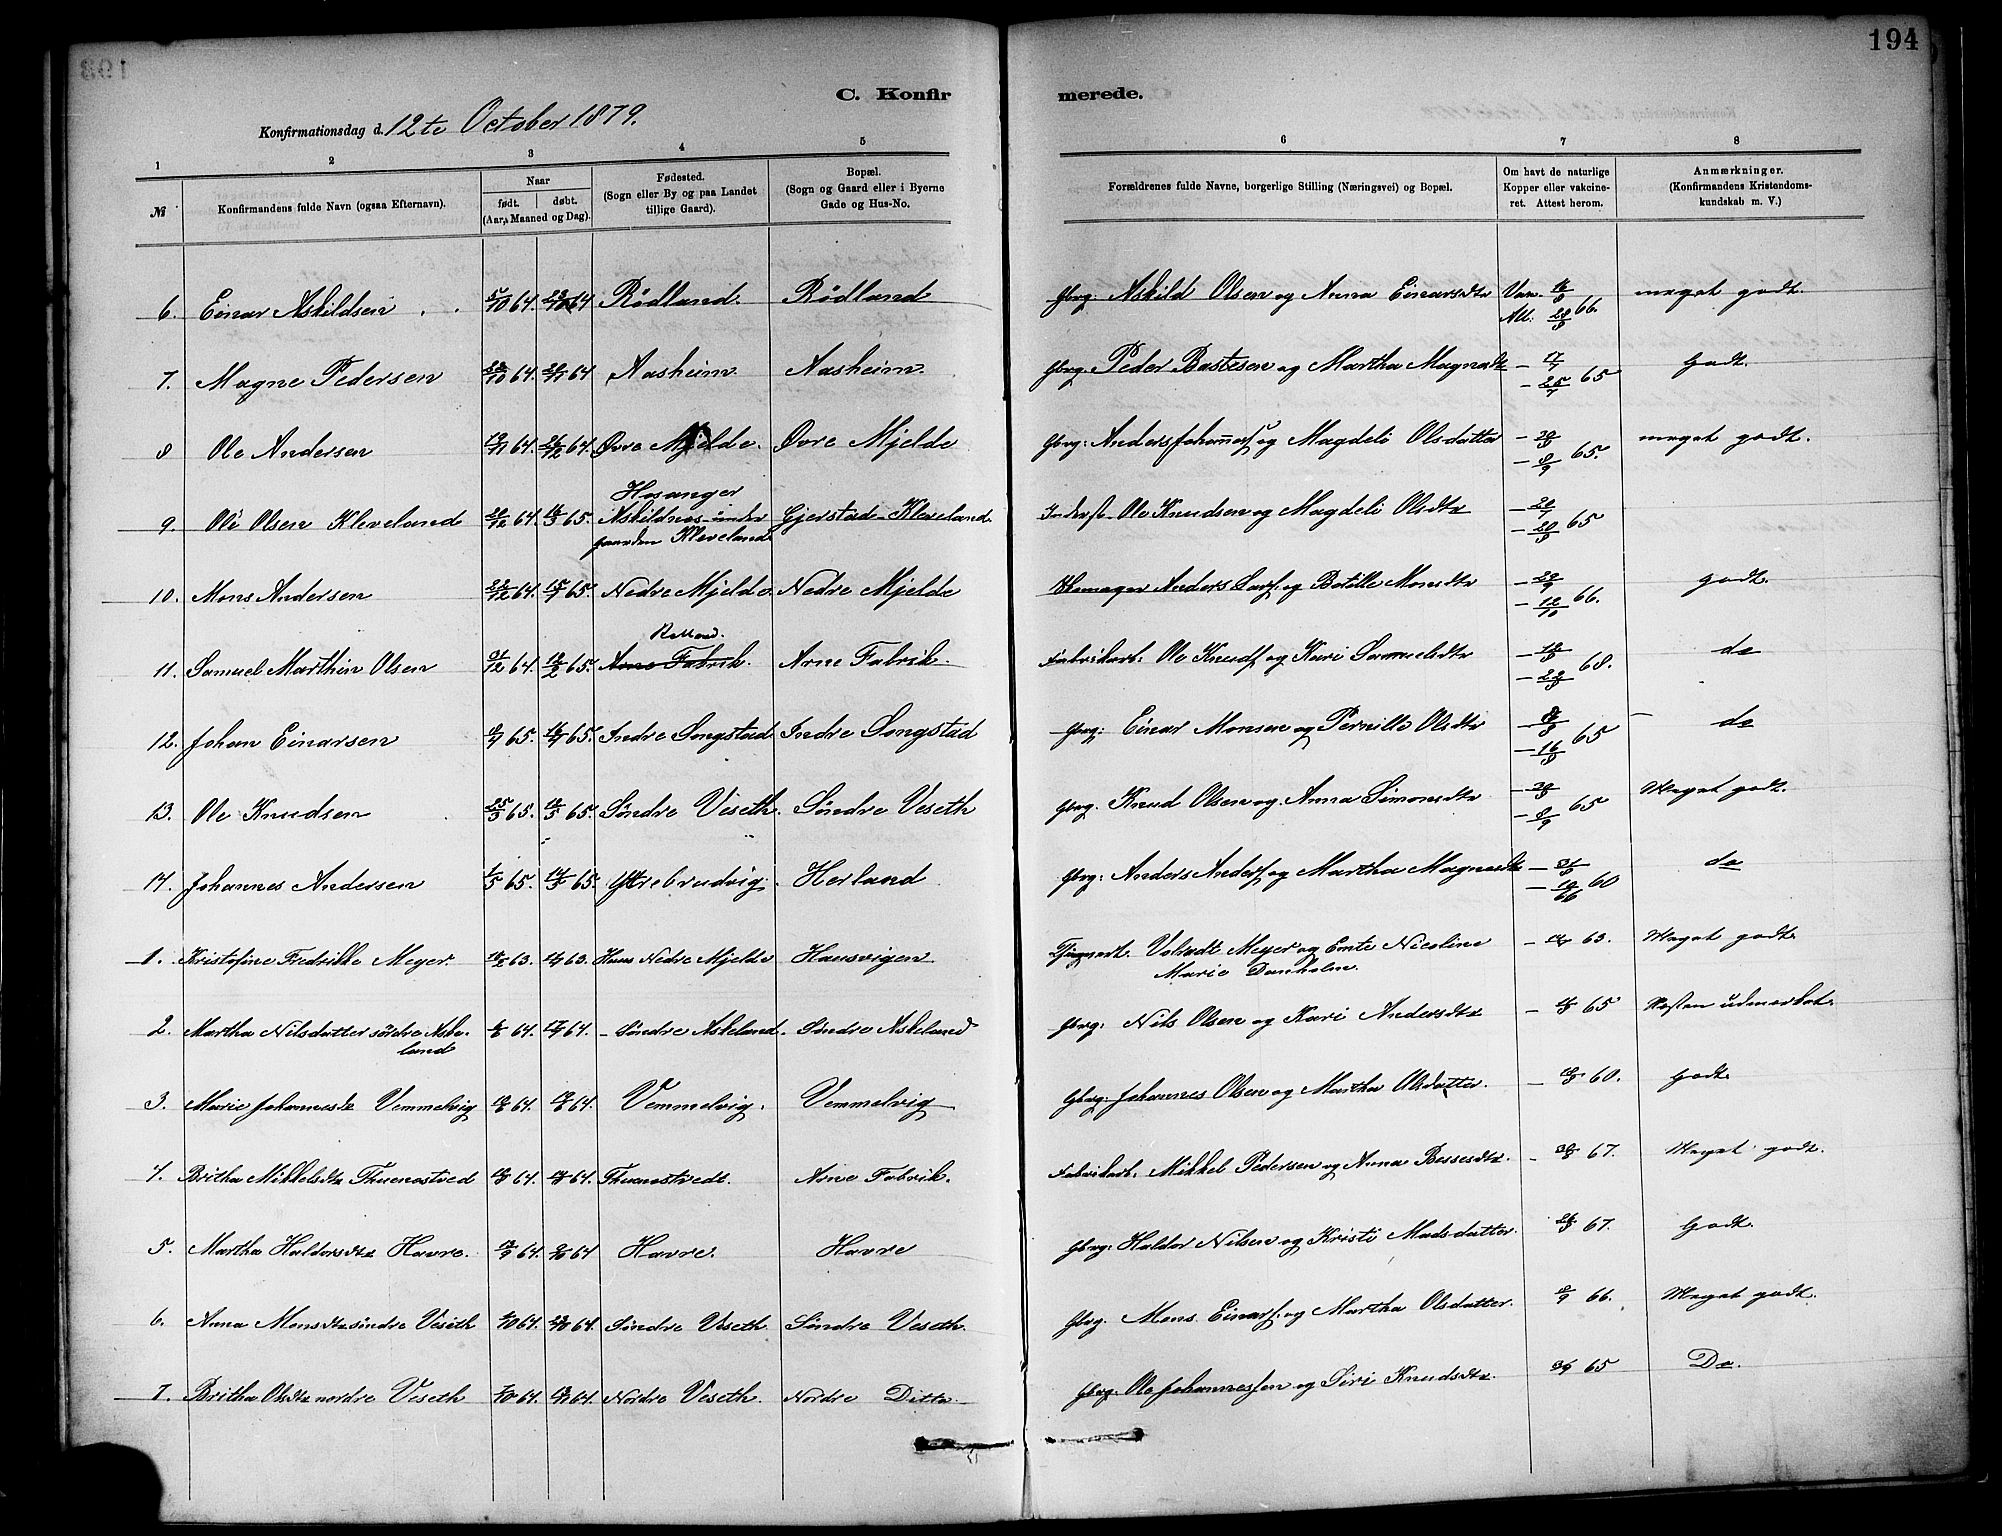 194
C. Konfirmerede.
Konfirmationsdag d. 12te October 1879.
1 2 3 4 5 6 7 8
№ Konfirmandens fulde Navn (ogsaa Efternavn). Naar født. døbt. (Aar, Maaned og Dag). Fødested. (Sogn eller By og paa Landet tillige Gaard). Bopæl. (Sogn og Gaard eller i Byerne Gade og Hus-No. Forældrenes fulde Navne, borgerlige Stilling (Næringsvei) og Bopæl. Om havt de naturlige Kopper eller vakcineret. Attest herom. Anmærkninger. (Konfirmandens Kristendomskundskab m. V.)
6. Einar Askildsen 5/10 64. Rødland. Rødland Gbrg: Askild Olsen og Anna Einarsdtr Vax. Att: 66. meget godt.
7. Magne Pedersen 64. 64 Aasheim. Aasheim. Gbrg. Peder Bastesen og Martha Magnsdtr 17/7 25/7 65 Godt.
8 Ole Andersen 64. 64. Øvre Mjelde. Øvre Mjelde Gbrg: Anders Johannes. og Magdeli Olsdatter 8/9 65. meget godt.
9. Ole Olsen Kleveland 64. 65. Hosanger Askildnes under gaarden Kleveland Gjerstad-Kleveland. Inderst Ole Knudsen og Magdeli Olsdtr 65
10. Mons Andersen 64. 65. Nedre Mjelde. Nedre Mjelde Skomager Anders Lars. og Botille Monsdtr 12/10 66. godt.
11. Samuel Marthin Olsen 31/12 64. 65. Arne Fabrik. Arne Fabrik. Fabrikarb: Ole Knuds. og Kari Samuelsdtr 68. do
12. Johan Einarsen 65. 65. Indre Songstad Indre Songstad Gbrg: Einar Monsen og Pernille Olsdtr 16/8 65 do
13. Ole Knudsen 25/3 65. 65. Søndre Viseth. Søndre Veseth Gbrg. Knud Olsen og Anna Simonsdtr 8/9 65 Meget godt.
14. Johannes Andersen 1/5 65. 65. Ytrebrudvig. Herland Gbrg: Anders Anders. og Martha Magnesdtr do
1. Kristofine Fredrikke Meyer. 63. 63. Haus Nedre Mjelde Hausvigen Volradt Meyer og Emte Nicoline Marie Danholm. 63. Meget godt.
2. Martha Nilsdatter søndre Askeland 64. 64. Søndre Askeland. Søndre Askeland Gbrg: Nils Olsen og Kari Andersdtr 65 Næsten udmerket.
3. Marie Johannesdtr Vemmelvig 64. 64. Vemmelvig. Vemmelvig Gbrg: Johannes Olsen og Martha Olsdatter. 60. Godt.
4. Britha Mikkelsdtr Thuenestved 64. 64. Thunestvedt. Arne Fabrik. Fabrikarb: Mikkel Pedersen og Anna Bessesdtr. 67. Meget godt.
5. Martha Haldorsdtr Havre. 64. 64 Havre. Havre Gbrg: Haldor Nilsen og Kristi Madsdatter. 67. Godt.
6. Anna Monsdtr søndre Veseth 64. 64. Søndre Veseth Søndre Veseth. Gbrg. Mons Einars. og Martha Olsdatter. 8/9 66. Meget godt.
7. Britha Olsdtr nordre Veseth 64. 64. Nordre Veseth. Nordre Ditto Gbrg: Ole Johannessen og Siri Knudsdtr. 65 Do.